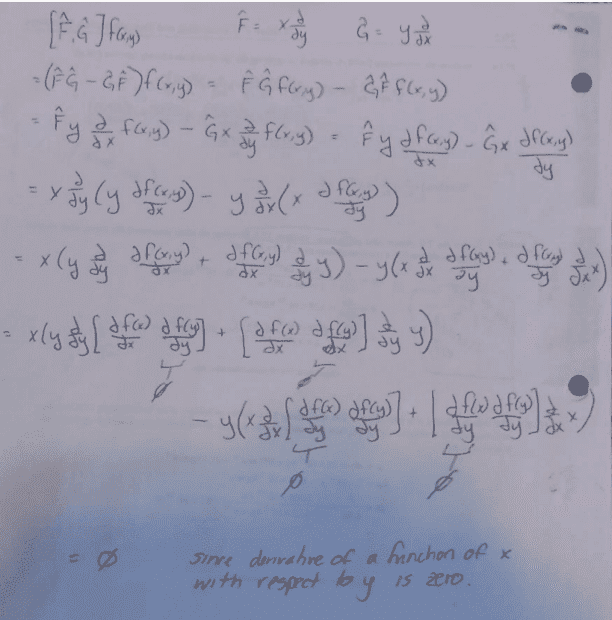 [F̂,Ĝ]f(x,y)   F̂ = x ∂/∂y   Ĝ = y ∂/∂x
=(F̂Ĝ - ĜF̂)f(x,y) = F̂Ĝf(x,y) - ĜF̂f(x,y)
= F̂y ∂/∂x f(x,y) - Ĝx ∂/∂y f(x,y) = F̂ y ∂f(x,y)/∂x - Ĝx ∂f(x,y)/∂y
= x ∂/∂y (y ∂f(x,y)/∂x) - y ∂/∂x (x ∂f(x,y)/∂y)
= x(y ∂/∂y ∂f(x,y)/∂x + ∂f(x,y)/∂x ∂/∂y y) - y(x ∂/∂x ∂f(x,y)/∂y + ∂f(x,y)/∂y ∂/∂x x)
= x(y ∂/∂y [∂f(x)/∂x ∂f(y)/∂y] + [∂f(x)/∂x ∂f(y)/∂x] ∂/∂y y)
∅ ∅
- y(x ∂/∂x [∂f(x)/∂y ∂f(y)/∂y] + [∂f(x)/∂y ∂f(y)/∂y] ∂/∂x x)
∅ ∅
= ∅   since derivative of a function of x
with respect to y is zero.